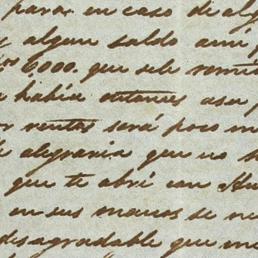 para en caso de alg
y algun saldo aun p
los 6000. que sele remi
a había entonces asu p
or ventas será poco m
le alegraria que no h
que te abri con Hu
en sus manos se n
desagradable que me